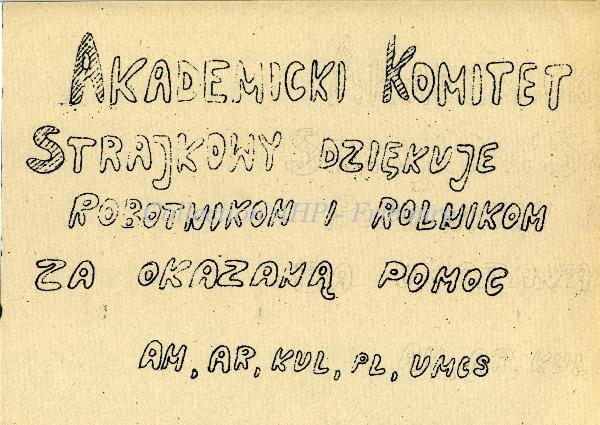 AKADEMICKI KOMITET
STRAJKOWY DZIĘKUJE
ROBOTNIKOM I ROLNIKOM
ZA OKAZANĄ POMOC
AM, AR, KUL, PL, UMCS